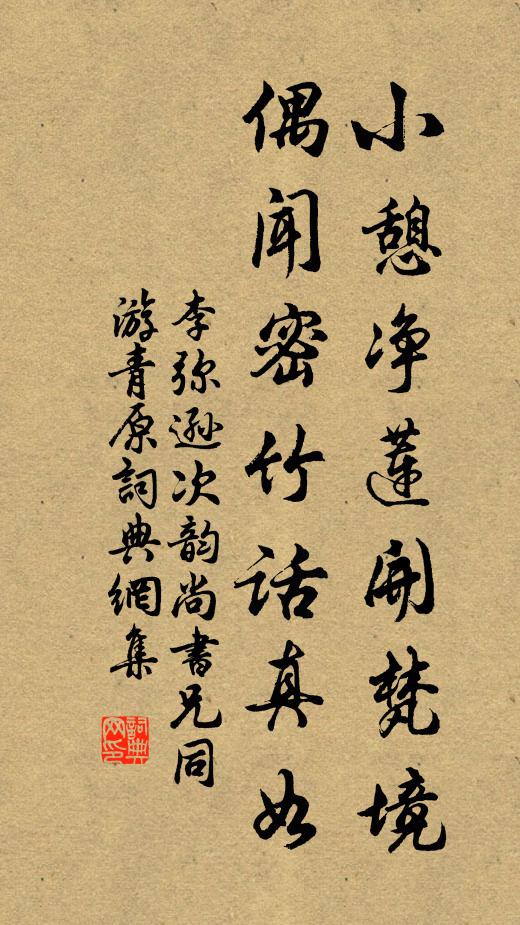 小憩净莲开梵境
偶闻密竹话真如
李弥逊次韵尚书兄同
游青原詞典網集
詞典
网印